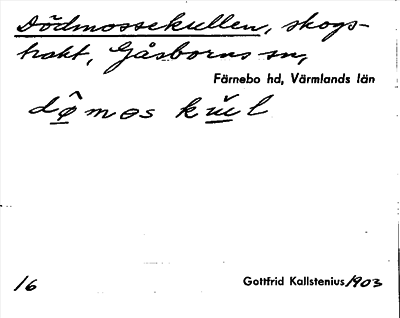 Dödmossekullen, skogs-
trakt, Gåsborns sn,
Färnebo hd, Värmlands län
dø̂mos kŭl
16
Gottfrid Kallstenius 1903